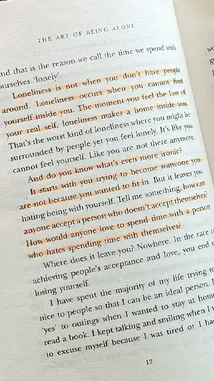 THE ART OF BEING ALONE
nd that is the reason we call the time we spend with
ourselves 'lonely'.
Loneliness is not when you don't have people
around. Loneliness occurs when you cannot find
yourself inside you. The moment you feel the loss of
your real self, loneliness makes a home inside you.
That's the worst kind of loneliness where you might be
surrounded by people yet you feel lonely. It's like you
cannot feel yourself. Like you are not there anymore.
And do you know what's even more ironic?
It starts with you trying to become someone you
are not because you wanted to fit in. But it leaves you
hating being with yourself. Tell me something, how can
anyone accept a person who doesn't accept themselves?
How would anyone love to spend time with a person
who hates spending time with themselves?
Where does it leave you? Nowhere. In the race of
achieving people's acceptance and love, you end
losing yourself.
I have spent the majority of my life trying
nice to people so that I can be an ideal person. I
'yes' to outings when I wanted to stay at home
read a book. I kept talking and smiling when I
to excuse myself because I was tired or I ha
12